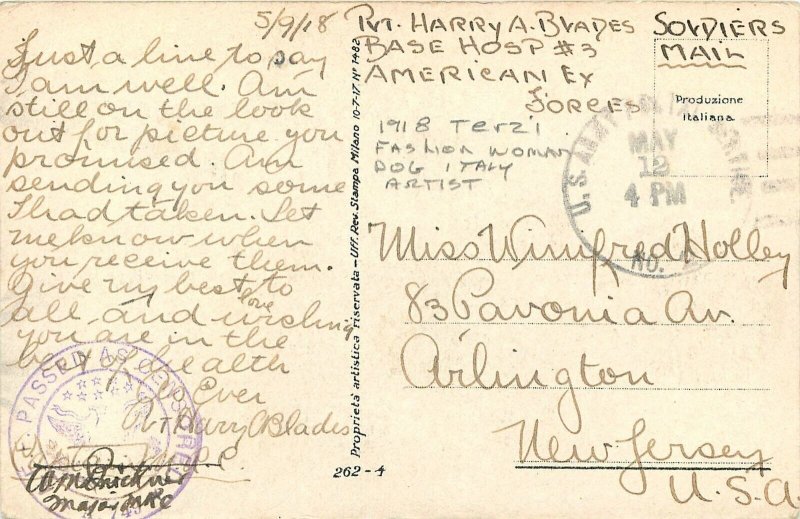 5/9/18
Just a line to say
I am well. Am
still on the look
out for picture you
promised. Am
sending you some
I had taken. Let
me know when
you receive them.
Give my best to
love
all and wishing
you are in the
best of health
As Ever
Pvt Harry A Blades
A.E.F.
Major MRC
PASSED AS CENSORED
Proprietà artistica riservata - Uff. Rev. Stampa Milano 10-7-17 N° 1482
262-4
PVT. HARRY A. BLADES
BASE HOSP #3
AMERICAN EX
FORCES
SOLDIERS
MAIL
Produzione
Italiana
1918 Terzi
FASHION WOMAN
DOG ITALY
ARTIST
U.S. ARMY
MAY
12
4 PM
NO.
Miss Winifred Holley
83 Pavonia Av.
Arlington
New Jersey
U.S.A